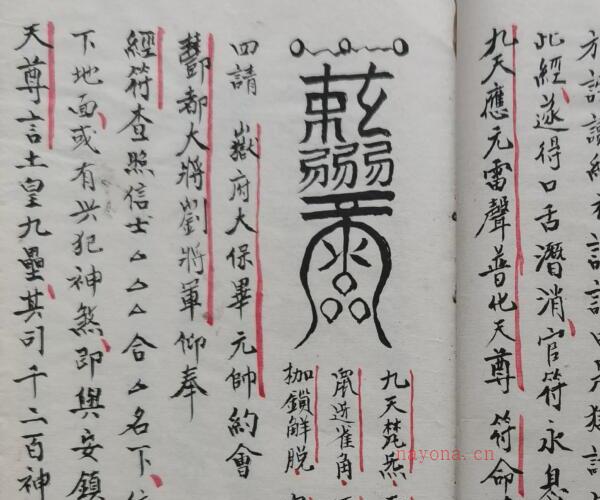 此經、遂得口舌潛消、官符永息
九天應元雷聲普化天尊 符命
九天梵炁、
鼠迸雀角、
枷鎖解脫、
四請 嶽府大保畢元帥約會
酆都大將劉將軍仰奉
經符查照信士△△△合△名下、
下地面、或有兴犯神煞、即與安鎮
天尊言土皇九壘、其司千二百神
nayona.cn